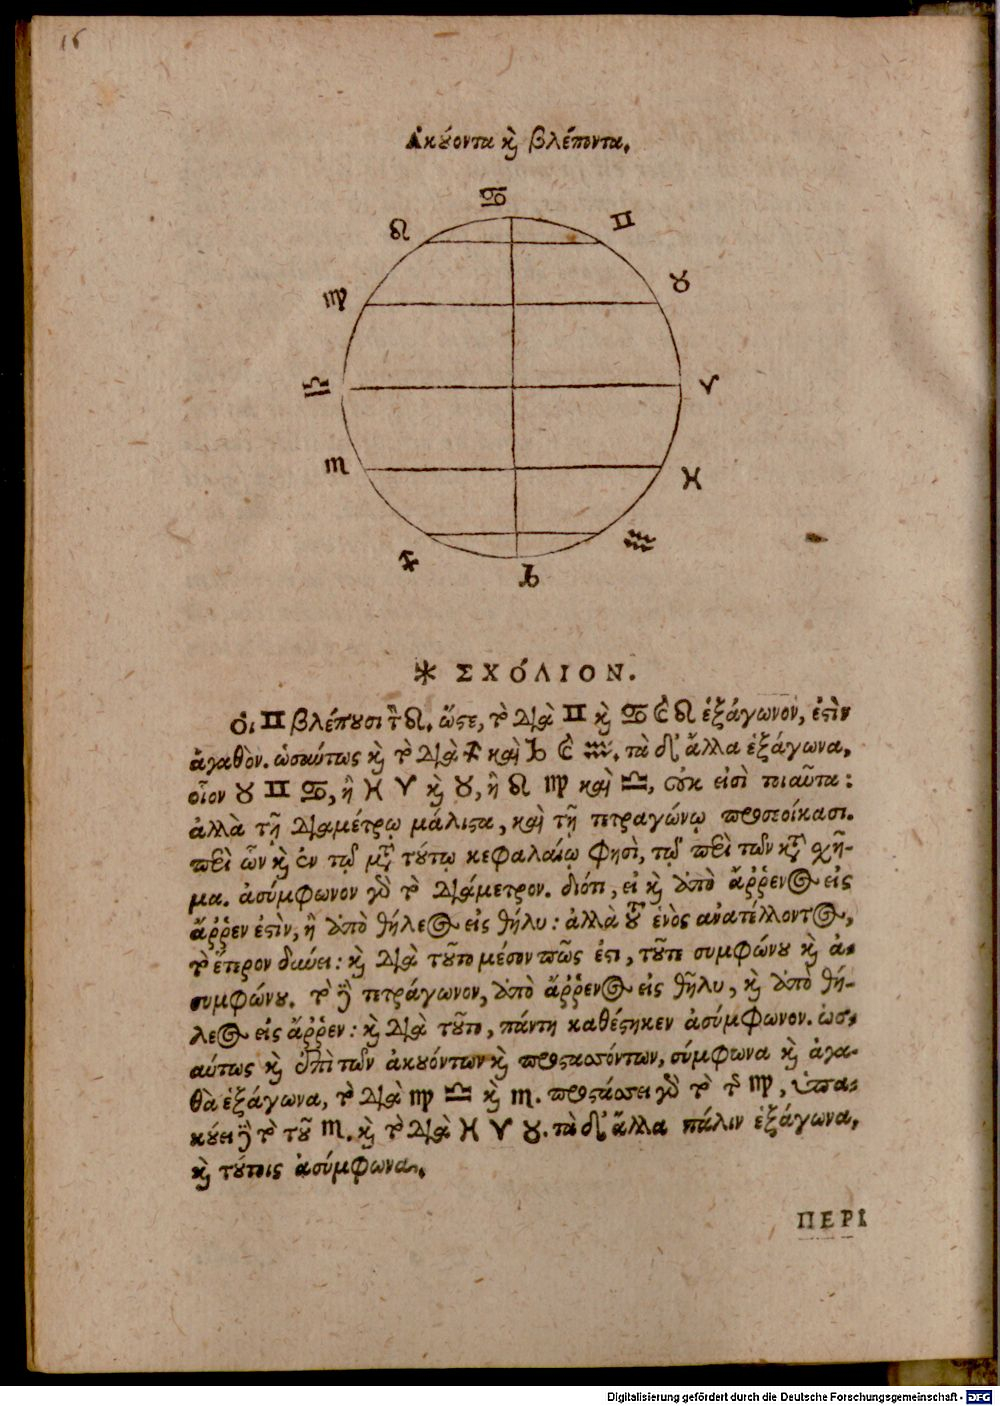 16
Ἀκούοντα καὶ βλέποντα.
♋
♌ ♊
♍ ♉
♎ ♈
♏ ♓
♐ ♒
♑
* ΣΧΌΛΙΟΝ.
Οἱ ♊ βλέπουσι τὸν ♌. ὥστε, τὸ διὰ ♊ καὶ ♋ καὶ ♌ ἑξάγωνον, ἐστὶν
ἀγαθὸν. ὡσαύτως καὶ τὸ διὰ ♐ καὶ ♑ καὶ ♒. τὰ δ' ἄλλα ἑξάγωνα,
οἷον ♉ ♊ ♋, ἢ ♓ ♈ καὶ ♉, ἢ ♌ ♍ καὶ ♎, οὐκ εἰσὶ τοιαῦτα:
ἀλλὰ τῇ διαμέτρῳ μάλιστα, καὶ τῇ τετραγώνῳ προσεοίκασι.
περὶ ὧν καὶ ἐν τῷ μετὰ τούτῳ κεφαλαίῳ φησὶ, τῷ περὶ τῶν κατὰ σχῆ-
μα. ἀσύμφωνον γὰρ τὸ διάμετρον. διότι, εἰ καὶ ἀπὸ ἄῤῥενος εἰς
ἄῤῥεν ἐστὶν, ἢ ἀπὸ θήλεος εἰς θῆλυ: ἀλλὰ τοῦ ἑνὸς ἀνατέλλοντος,
τὸ ἕτερον δύνει: καὶ διὰ τοῦτο μέσον πῶς ἐστι, τοῦτε συμφώνου καὶ ἀ-
συμφώνου. τὸ δὲ τετράγωνον, ἀπὸ ἄῤῥενος εἰς θῆλυ, καὶ ἀπὸ θή-
λεος εἰς ἄῤῥεν: καὶ διὰ τοῦτο, πάντη καθέστηκεν ἀσύμφωνον. ὡσ-
αύτως καὶ ἐπὶ τῶν ἀκουόντων καὶ προστασσόντων, σύμφωνα καὶ ἀγα-
θὰ ἑξάγωνα, τὸ διὰ ♍ ♎ καὶ ♏. προστάσσει γὰρ τὸ τῆς ♍, ὑπα-
κούει δὲ τὸ τοῦ ♏. καὶ τὸ διὰ ♓ ♈ ♉. τὰ δ' ἄλλα πάλιν ἑξάγωνα,
καὶ τούτοις ἀσύμφωνα.
ΠΕΡΙ
Digitalisierung gefördert durch die Deutsche Forschungsgemeinschaft - DFG